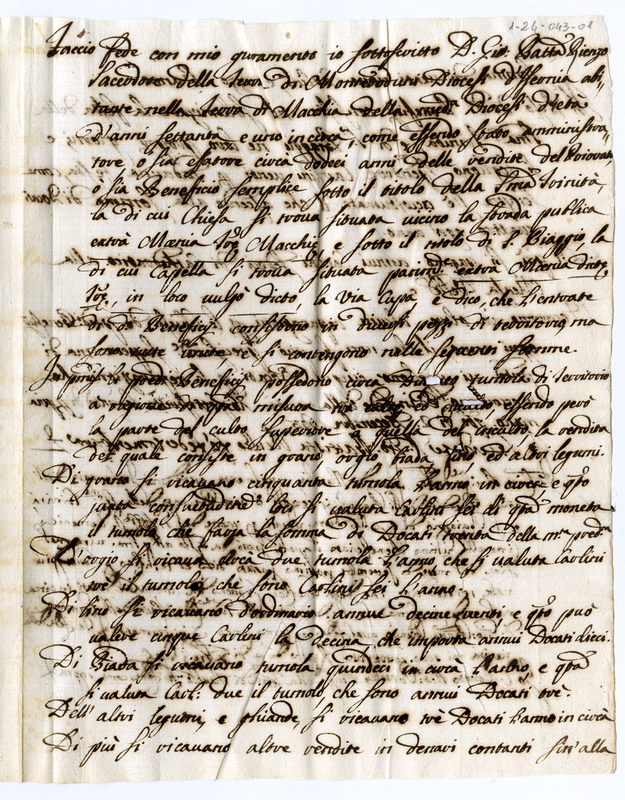 1-26-043-01
Faccio fede con mio giuramento io sottoscritto D. Gio: Batta Rienzo
Sacerdote della Terra di Monteroduni Diocesi d'Isernia abi=
tante nella Terra di Macchia della med.ª Diocesi d'età
d'anni settanta e uno in circa, come essendo stato amministra=
tore ò sia esattore circa dodeci anni delle rendite del Priorato
ò sia Beneficio semplice sotto il titolo della SS.ma Trinità,
la di cui Chiesa si trova situata vicino la strada publica
extrà Mœnia Macchię, e sotto il titolo di S. Biaggio, la
di cui Capella si trova situata parim.te extrà Mœnia dictę
in loco vulgò dicto, la Via Cupa e dico, che l'entrate
di dⁱ Beneficij consistono in diversi pezzi di territorio ma
unite, e si contengono nella seguente forma.
In primis li pred.ⁱ Beneficij possedono circa tumola di territorio
à ragione misura ed essendo però
la parte del culto superiore à quella dell'inculto, la rendita
del quale consiste in grano orgio biada lino, ed altri legumi.
Di grano si ricavano cinquanta tumola l'anno in circa, e q.to
juxta loci si valuta Carlini sei di q.ta moneta
il tumolo che fanno la somma di Docati trenta della m.ta pred.ª
D'orgio si ricava circa due tumola l'anno che si valuta Carlini
trè il tumolo, che sono Carlini sei l'anno.
Di lino si ricavano d'ordinario annue decine venti, e q.to può
valere cinque Carlini la decina, che importa annui Docati dieci.
Di Biada si ricavano tumola quindeci in circa l'anno, e q.ta
si valuta Carl. due il tumolo, che sono annui Docati trè.
Dell'altri legumi, e ghiande, si ricavano trè Docati l'anno in circa
Di più si ricavano altre rendite in denari contanti sin'alla